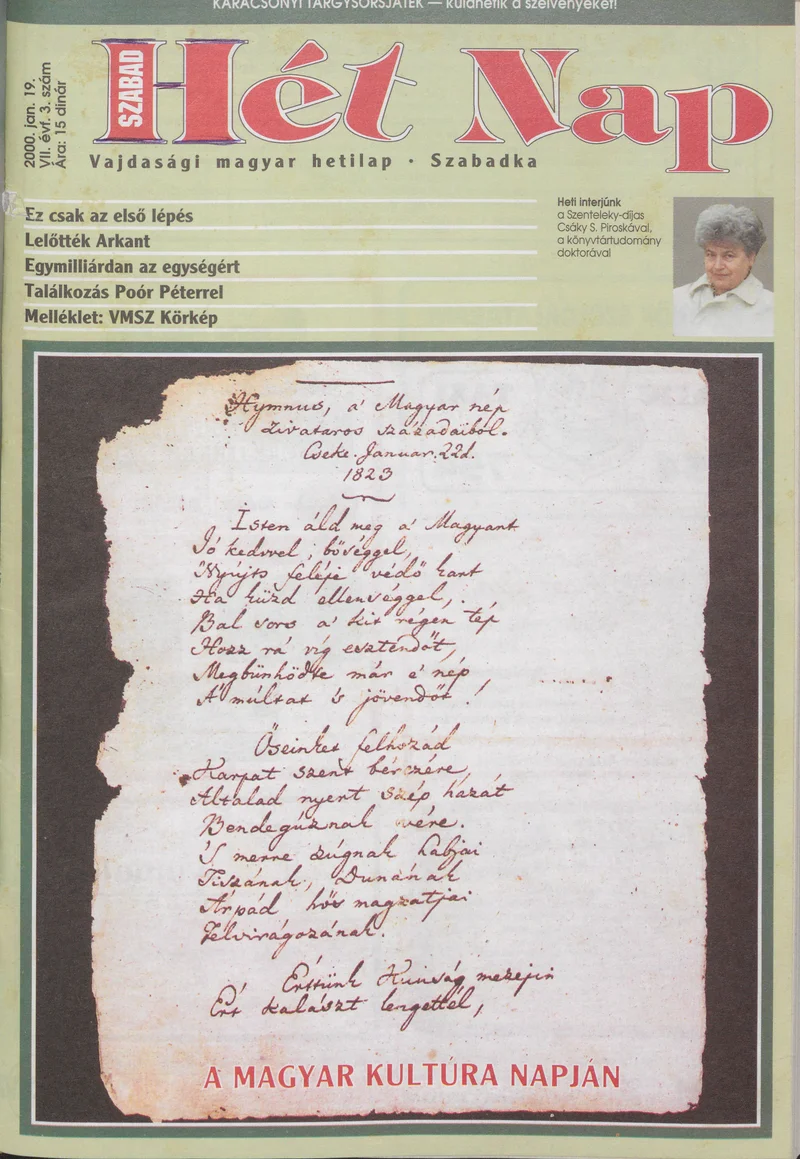 KARÁCSONYI TÁRGYSORSJÁTÉK — küldhetik a szelvényeket!
2000. jan. 19.
VII. évf. 3. szám
Ára: 15 dinár
SZABAD
Hét Nap
Vajdasági magyar hetilap · Szabadka
Ez csak az első lépés
Lelőtték Arkant
Egymilliárdan az egységért
Találkozás Poór Péterrel
Melléklet: VMSZ Körkép
Heti interjúnk
a Szenteleky-díjas
Csáky S. Piroskával,
a könyvtártudomány
doktorával
Hymnus, a' Magyar nép
zivataros századaiból.
Cseke. Januar. 22d.
1823
Isten áld meg a' Magyart
Jó kedvvel, bőséggel,
Nyújts feléje védő kart
Ha küzd ellenséggel,
Bal sors a' kit régen tép
Hozz rá víg esztendőt,
Megbűnhödte már e' nép
A' múltat 's jövendőt!
Őseinket felhozád
Kárpát szent bérczére
Általad nyert szép hazát
Bendegúznak vére.
'S merre zúgnak habjai
Tiszának, Dunának
Árpád hős magzatjai
Felvirágozának.
Értünk Kunság mezein
Ért kalászt lengettél,
A MAGYAR KULTÚRA NAPJÁN